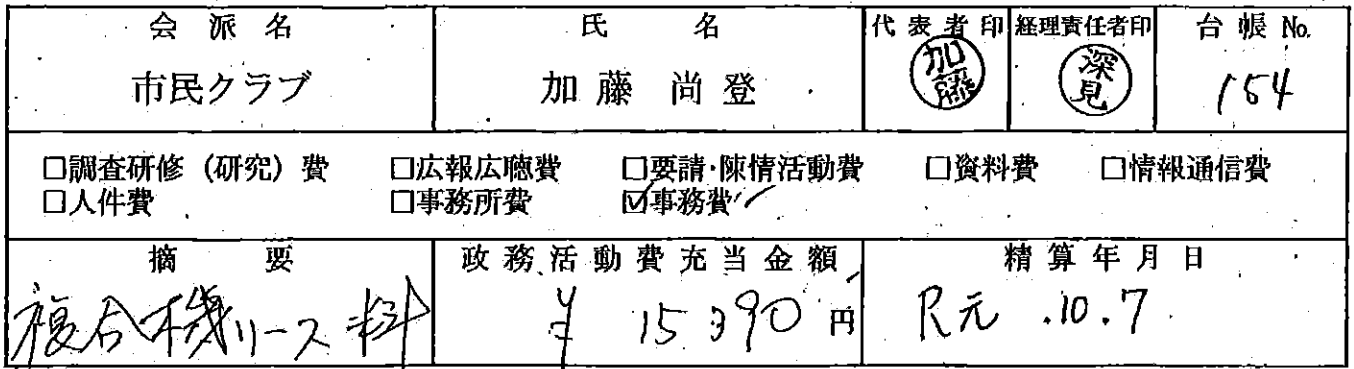 会派名 氏名 代表者印 経理責任者印 台帳 No.
市民クラブ 加藤尚登 加藤 深見 154
□調査研修(研究)費 □広報広聴費 □要請・陳情活動費 □資料費 □情報通信費
□人件費 □事務所費 ☑事務費
摘要 政務活動費充当金額 精算年月日
複合機リース料 ¥15390円 R元.10.7